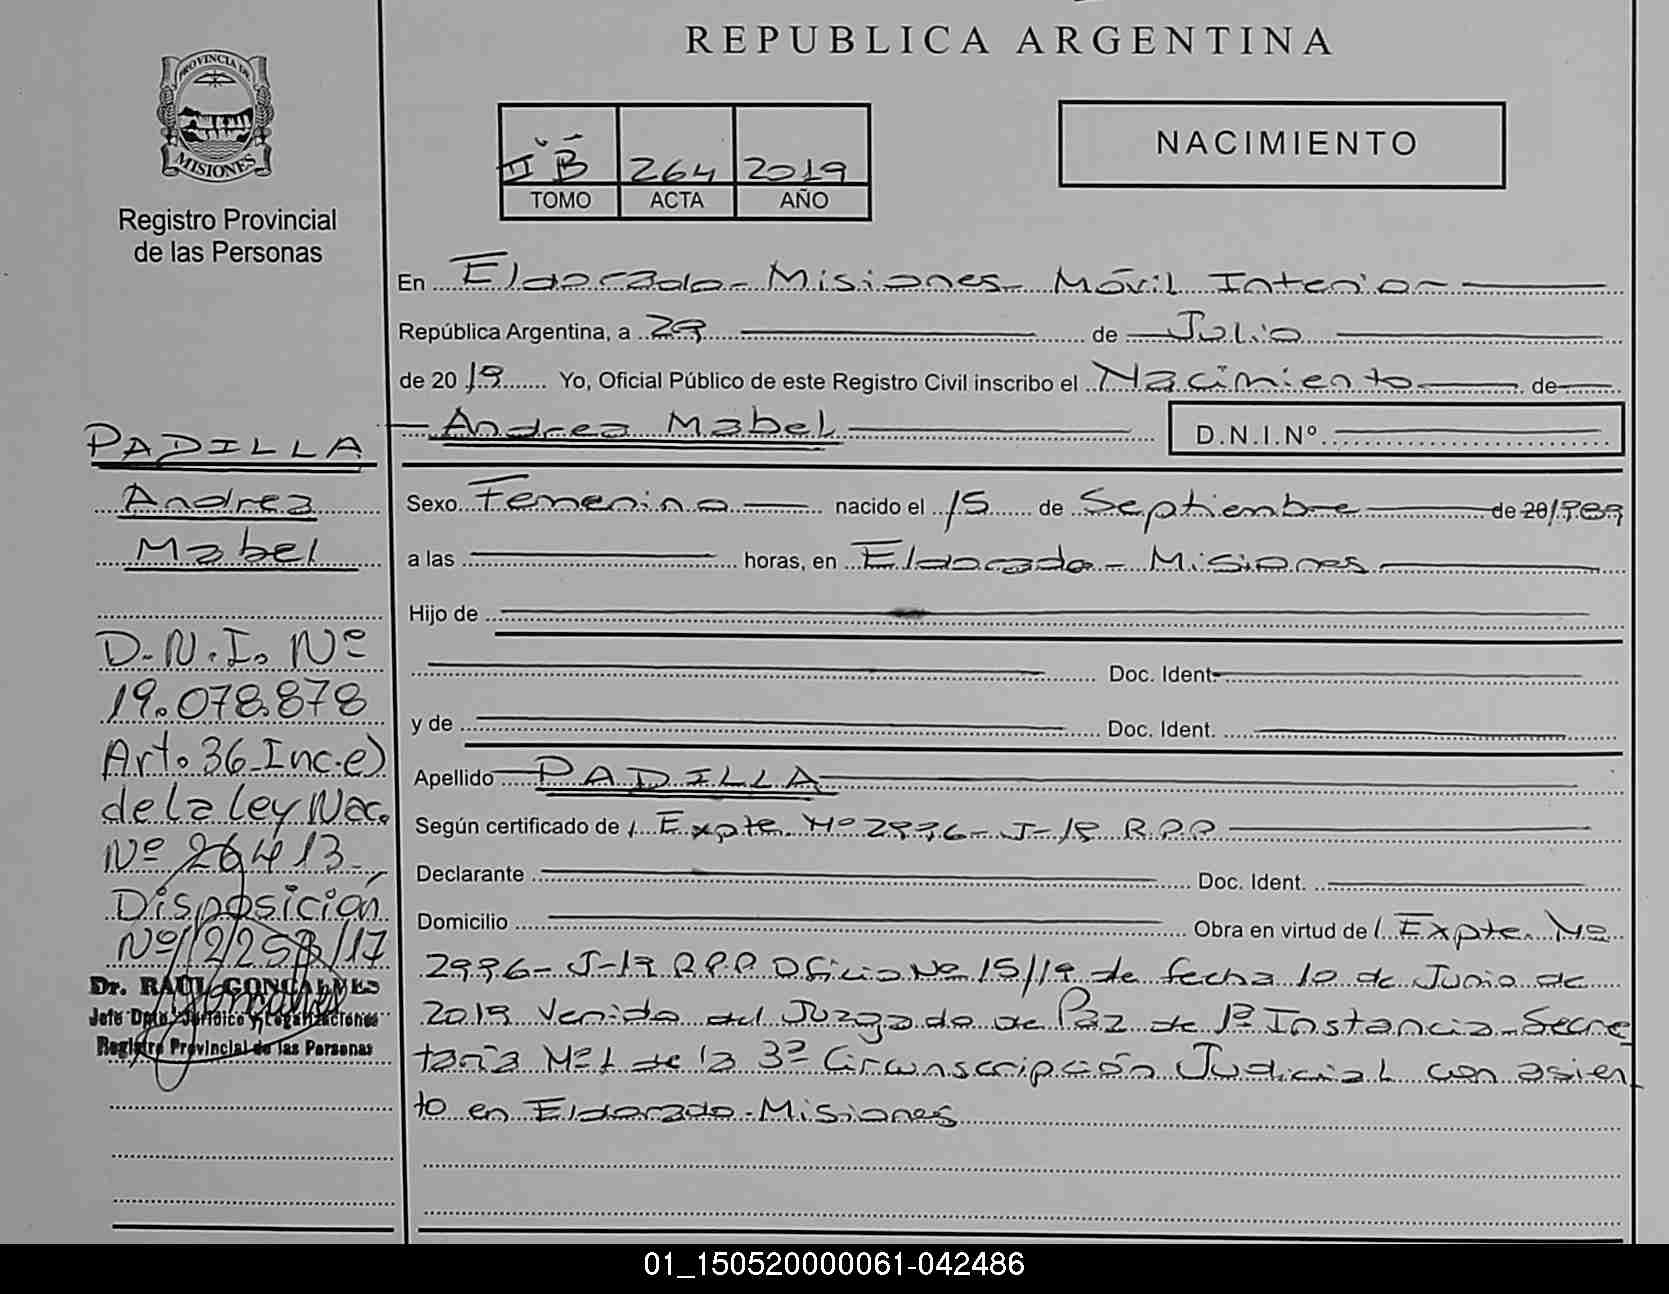 REPUBLICA ARGENTINA
PROVINCIA DE
MISIONES
Registro Provincial
de las Personas
II B 264 2019
TOMO ACTA AÑO
NACIMIENTO
En Eldorado - Misiones - Móvil Interior
República Argentina, a 29 de Julio
de 2019 Yo, Oficial Público de este Registro Civil inscribo el Nacimiento de
Andrea Mabel D.N.I.Nº
Sexo Femenino nacido el 15 de Septiembre de 20/1989
a las horas, en Eldorado - Misiones
Hijo de
Doc. Ident.
y de Doc. Ident.
Apellido PADILLA
Según certificado de Expte. Nº 2996-J-19 R.P.P
Declarante Doc. Ident.
Domicilio Obra en virtud de Expte. Nº
2996-J-19 R.P.P Oficio Nº 15/19 de fecha 10 de Junio de
2019 Venido del Juzgado de Paz de 1ª Instancia - Secre
taria Nº 1 de la 3ª Circunscripción Judicial con asien
to en Eldorado - Misiones
PADILLA
Andrea
Mabel
D.N.I. Nº
19.078.878
Art. 36 Inc. e)
de la Ley Nac.
Nº 26413
Disposición
Nº
Dr. RAUL GONCALVES
Jefe Dpto. Jurídico y Legalizaciones
Registro Provincial de las Personas
01_150520000061-042486